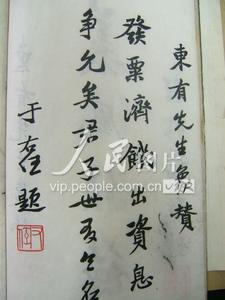 東有先生象贊
發粟濟饑出資息
争允矣君子世有令名
于右任題
人民图片
vip.people.com.cn